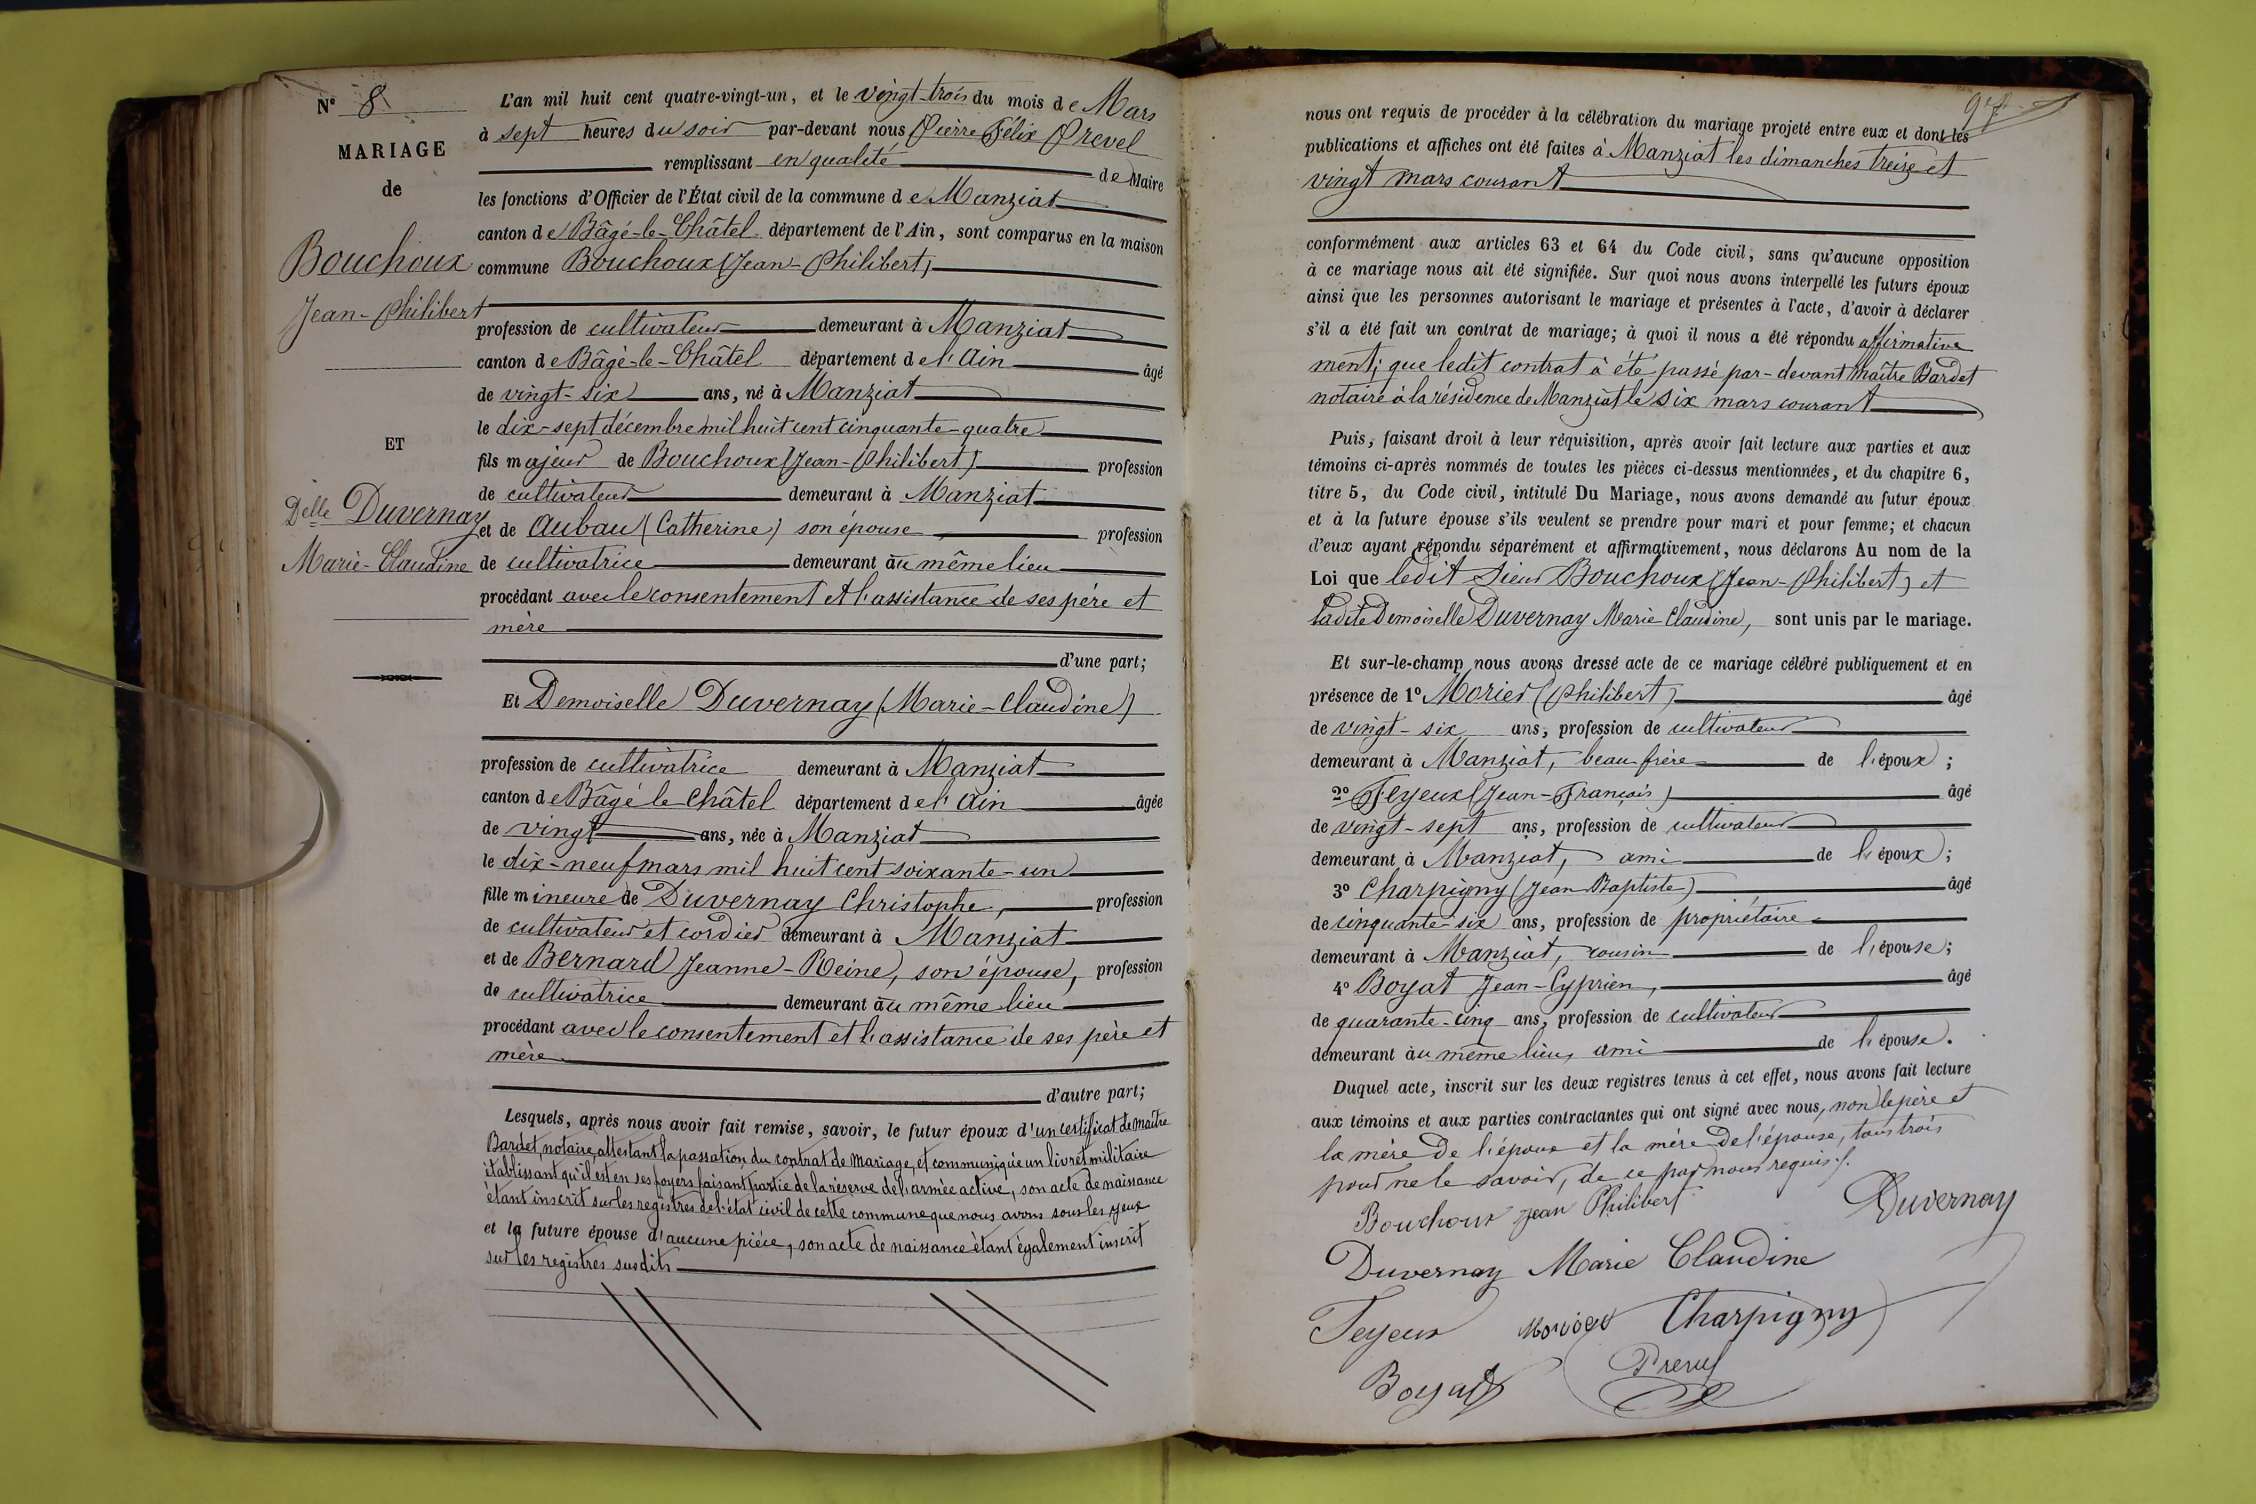 N° 8
MARIAGE
de
Bouchoux
Jean-Philibert
ET
Delle Duvernay
Marie-Claudine
L'an mil huit cent quatre-vingt-un, et le vingt-trois du mois de Mars
à sept heures du soir par-devant nous Pierre Félix Prevel
remplissant en qualité de Maire
les fonctions d'Officier de l'État civil de la commune de Manziat
canton de Bâgé-le-Châtel département de l'Ain, sont comparus en la maison
commune Bouchoux (Jean-Philibert)
profession de cultivateur demeurant à Manziat
canton de Bâgé-le-Châtel département de l'Ain âgé
de vingt-six ans, né à Manziat
le dix-sept décembre mil huit cent cinquante-quatre
fils majeur de Bouchoux (Jean-Philibert) profession
de cultivateur demeurant à Manziat
et de Aubau (Catherine) son épouse profession
de cultivatrice demeurant au même lieu
procédant avec le consentement et l'assistance de ses père et
mère
d'une part;
Et Demoiselle Duvernay (Marie-Claudine)
profession de cultivatrice demeurant à Manziat
canton de Bâgé le Châtel département de l'Ain âgée
de vingt ans, née à Manziat
le dix-neuf mars mil huit cent soixante-un
fille mineure de Duvernay Christophe, profession
de cultivateur et cordier demeurant à Manziat
et de Bernard Jeanne-Reine, son épouse, profession
de cultivatrice demeurant au même lieu
procédant avec le consentement et l'assistance de ses père et
mère
d'autre part;
Lesquels, après nous avoir fait remise, savoir, le futur époux d'un certificat de maître
Bardet, notaire, attestant la passation du contrat de mariage, et communiqué un livret militaire
établissant qu'il est en ses foyers faisant partie de la réserve de l'armée active, son acte de naissance
étant inscrit sur les registres de l'état civil de cette commune que nous avons sous les yeux
et la future épouse d'aucune pièce, son acte de naissance étant également inscrit
sur les registres susdits
97
nous ont requis de procéder à la célébration du mariage projeté entre eux et dont les
publications et affiches ont été faites à Manziat les dimanches treize et
vingt mars courant
conformément aux articles 63 et 64 du Code civil, sans qu'aucune opposition
à ce mariage nous ait été signifiée. Sur quoi nous avons interpellé les futurs époux
ainsi que les personnes autorisant le mariage et présentes à l'acte, d'avoir à déclarer
s'il a été fait un contrat de mariage; à quoi il nous a été répondu affirmative
ment; que ledit contrat à été passé par-devant maître Bardet
notaire à la résidence de Manziat le six mars courant
Puis, faisant droit à leur réquisition, après avoir fait lecture aux parties et aux
témoins ci-après nommés de toutes les pièces ci-dessus mentionnées, et du chapitre 6,
titre 5, du Code civil, intitulé Du Mariage, nous avons demandé au futur époux
et à la future épouse s'ils veulent se prendre pour mari et pour femme; et chacun
d'eux ayant répondu séparément et affirmativement, nous déclarons Au nom de la
Loi que ledit sieur Bouchoux (Jean-Philibert) et
ladite Demoiselle Duvernay Marie Claudine, sont unis par le mariage.
Et sur-le-champ nous avons dressé acte de ce mariage célébré publiquement et en
présence de 1° Morier (Philibert) âgé
de vingt-six ans, profession de cultivateur
demeurant à Manziat, beau frère de l'époux;
2° Feyeux (Jean-François) âgé
de vingt-sept ans, profession de cultivateur
demeurant à Manziat, ami de l'époux;
3° Charpigny (Jean Baptiste) âgé
de cinquante-six ans, profession de propriétaire
demeurant à Manziat, cousin de l'épouse;
4° Boyat Jean-Cyprien, âgé
de quarante-cinq ans, profession de cultivateur
demeurant au même lieu, ami de l'épouse.
Duquel acte, inscrit sur les deux registres tenus à cet effet, nous avons fait lecture
aux témoins et aux parties contractantes qui ont signé avec nous, non le père et
la mère de l'époux et la mère de l'épouse, tous trois
pour ne le savoir, de ce par nous requis.
Bouchoux Jean Philibert
Duvernay
Duvernay Marie Claudine
Feyeux Morier Charpigny
Boyat Prevel